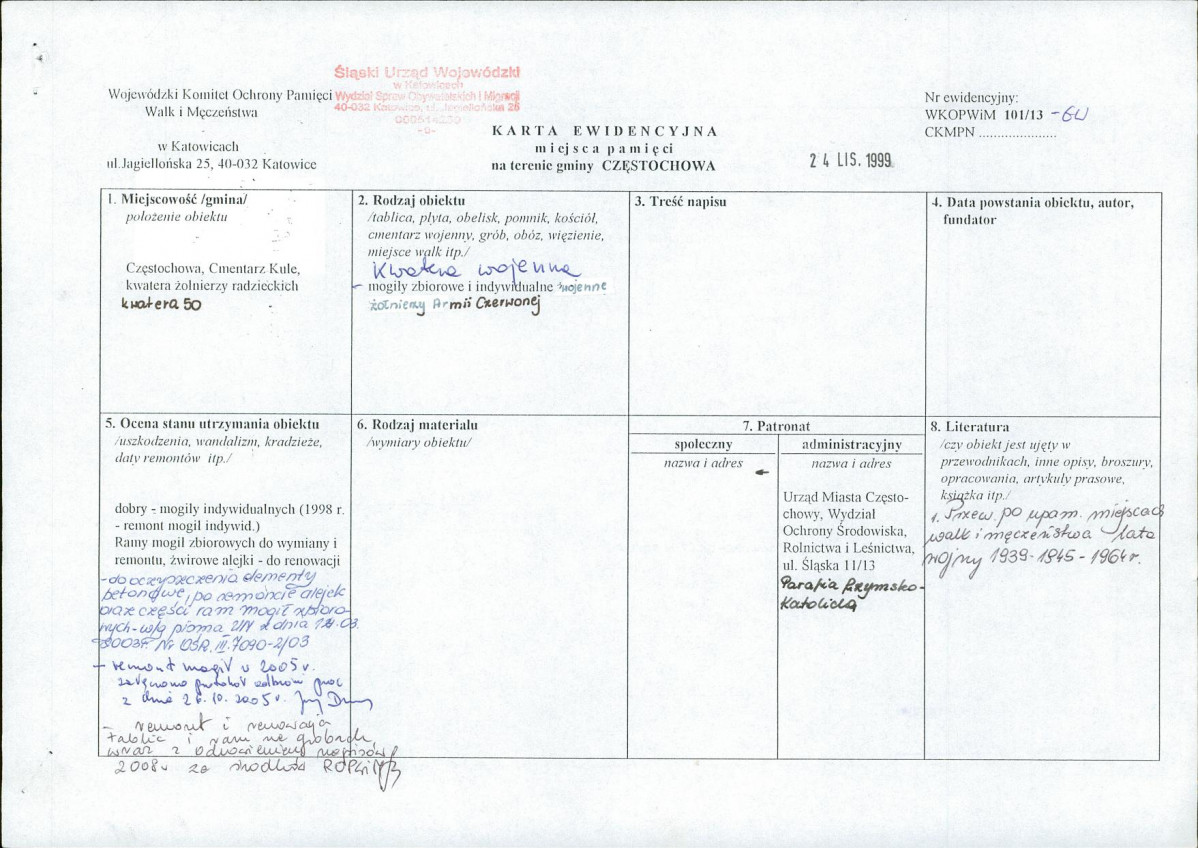 Śląski Urząd Wojewódzki
w Katowicach
Wydział Spraw Obywatelskich i Migracji
40-032 Katowice, ul. Jagiellońska 25
-9-
Wojewódzki Komitet Ochrony Pamięci
Walk i Męczeństwa
w Katowicach
ul.Jagiellońska 25, 40-032 Katowice
KARTA EWIDENCYJNA
miejsca pamięci
na terenie gminy CZĘSTOCHOWA
24 LIS. 1999
Nr ewidencyjny:
WKOPWiM 101/13 -GW
CKMPN .....................
1. Miejscowość /gmina/
położenie obiektu
Częstochowa, Cmentarz Kule,
kwatera żołnierzy radzieckich
kwatera 50
2. Rodzaj obiektu
/tablica, płyta, obelisk, pomnik, kościół,
cmentarz wojenny, grób, obóz, więzienie,
miejsce walk itp./
Kwatera wojenna
- mogiły zbiorowe i indywidualne wojenne
żołnierzy Armii Czerwonej
3. Treść napisu
4. Data powstania obiektu, autor,
fundator
5. Ocena stanu utrzymania obiektu
/uszkodzenia, wandalizm, kradzieże,
daty remontów itp./
dobry - mogiły indywidualnych (1998 r.
- remont mogił indywid.)
Ramy mogił zbiorowych do wymiany i
remontu, żwirowe alejki - do renowacji
- do oczyszczenia elementy
betonowe, po remoncie alejek
oraz części ram mogił zbioro-
wych - w/g pisma z dnia 03.
2003r. Nr OŚR.III.7090-2/03
- remont mogił w 2005 r.
załączono protokół odbioru prac
z dnia 26.10.2005 r.
- remont i renowacja
tablic i ram na grobach,
wraz z odnowieniem napisów
2008 r za środków ROPWiM
6. Rodzaj materiału
/wymiary obiektu/
7. Patronat
społeczny
nazwa i adres
administracyjny
nazwa i adres
Urząd Miasta Często-
chowy, Wydział
Ochrony Środowiska,
Rolnictwa i Leśnictwa,
ul. Śląska 11/13
Parafia Rzymsko-
Katolicka
8. Literatura
/czy obiekt jest ujęty w
przewodnikach, inne opisy, broszury,
opracowania, artykuły prasowe,
książka itp./
1. Przew. po upam. miejscach
walk i męczeństwa lata
wojny 1939-1945 - 1964 r.